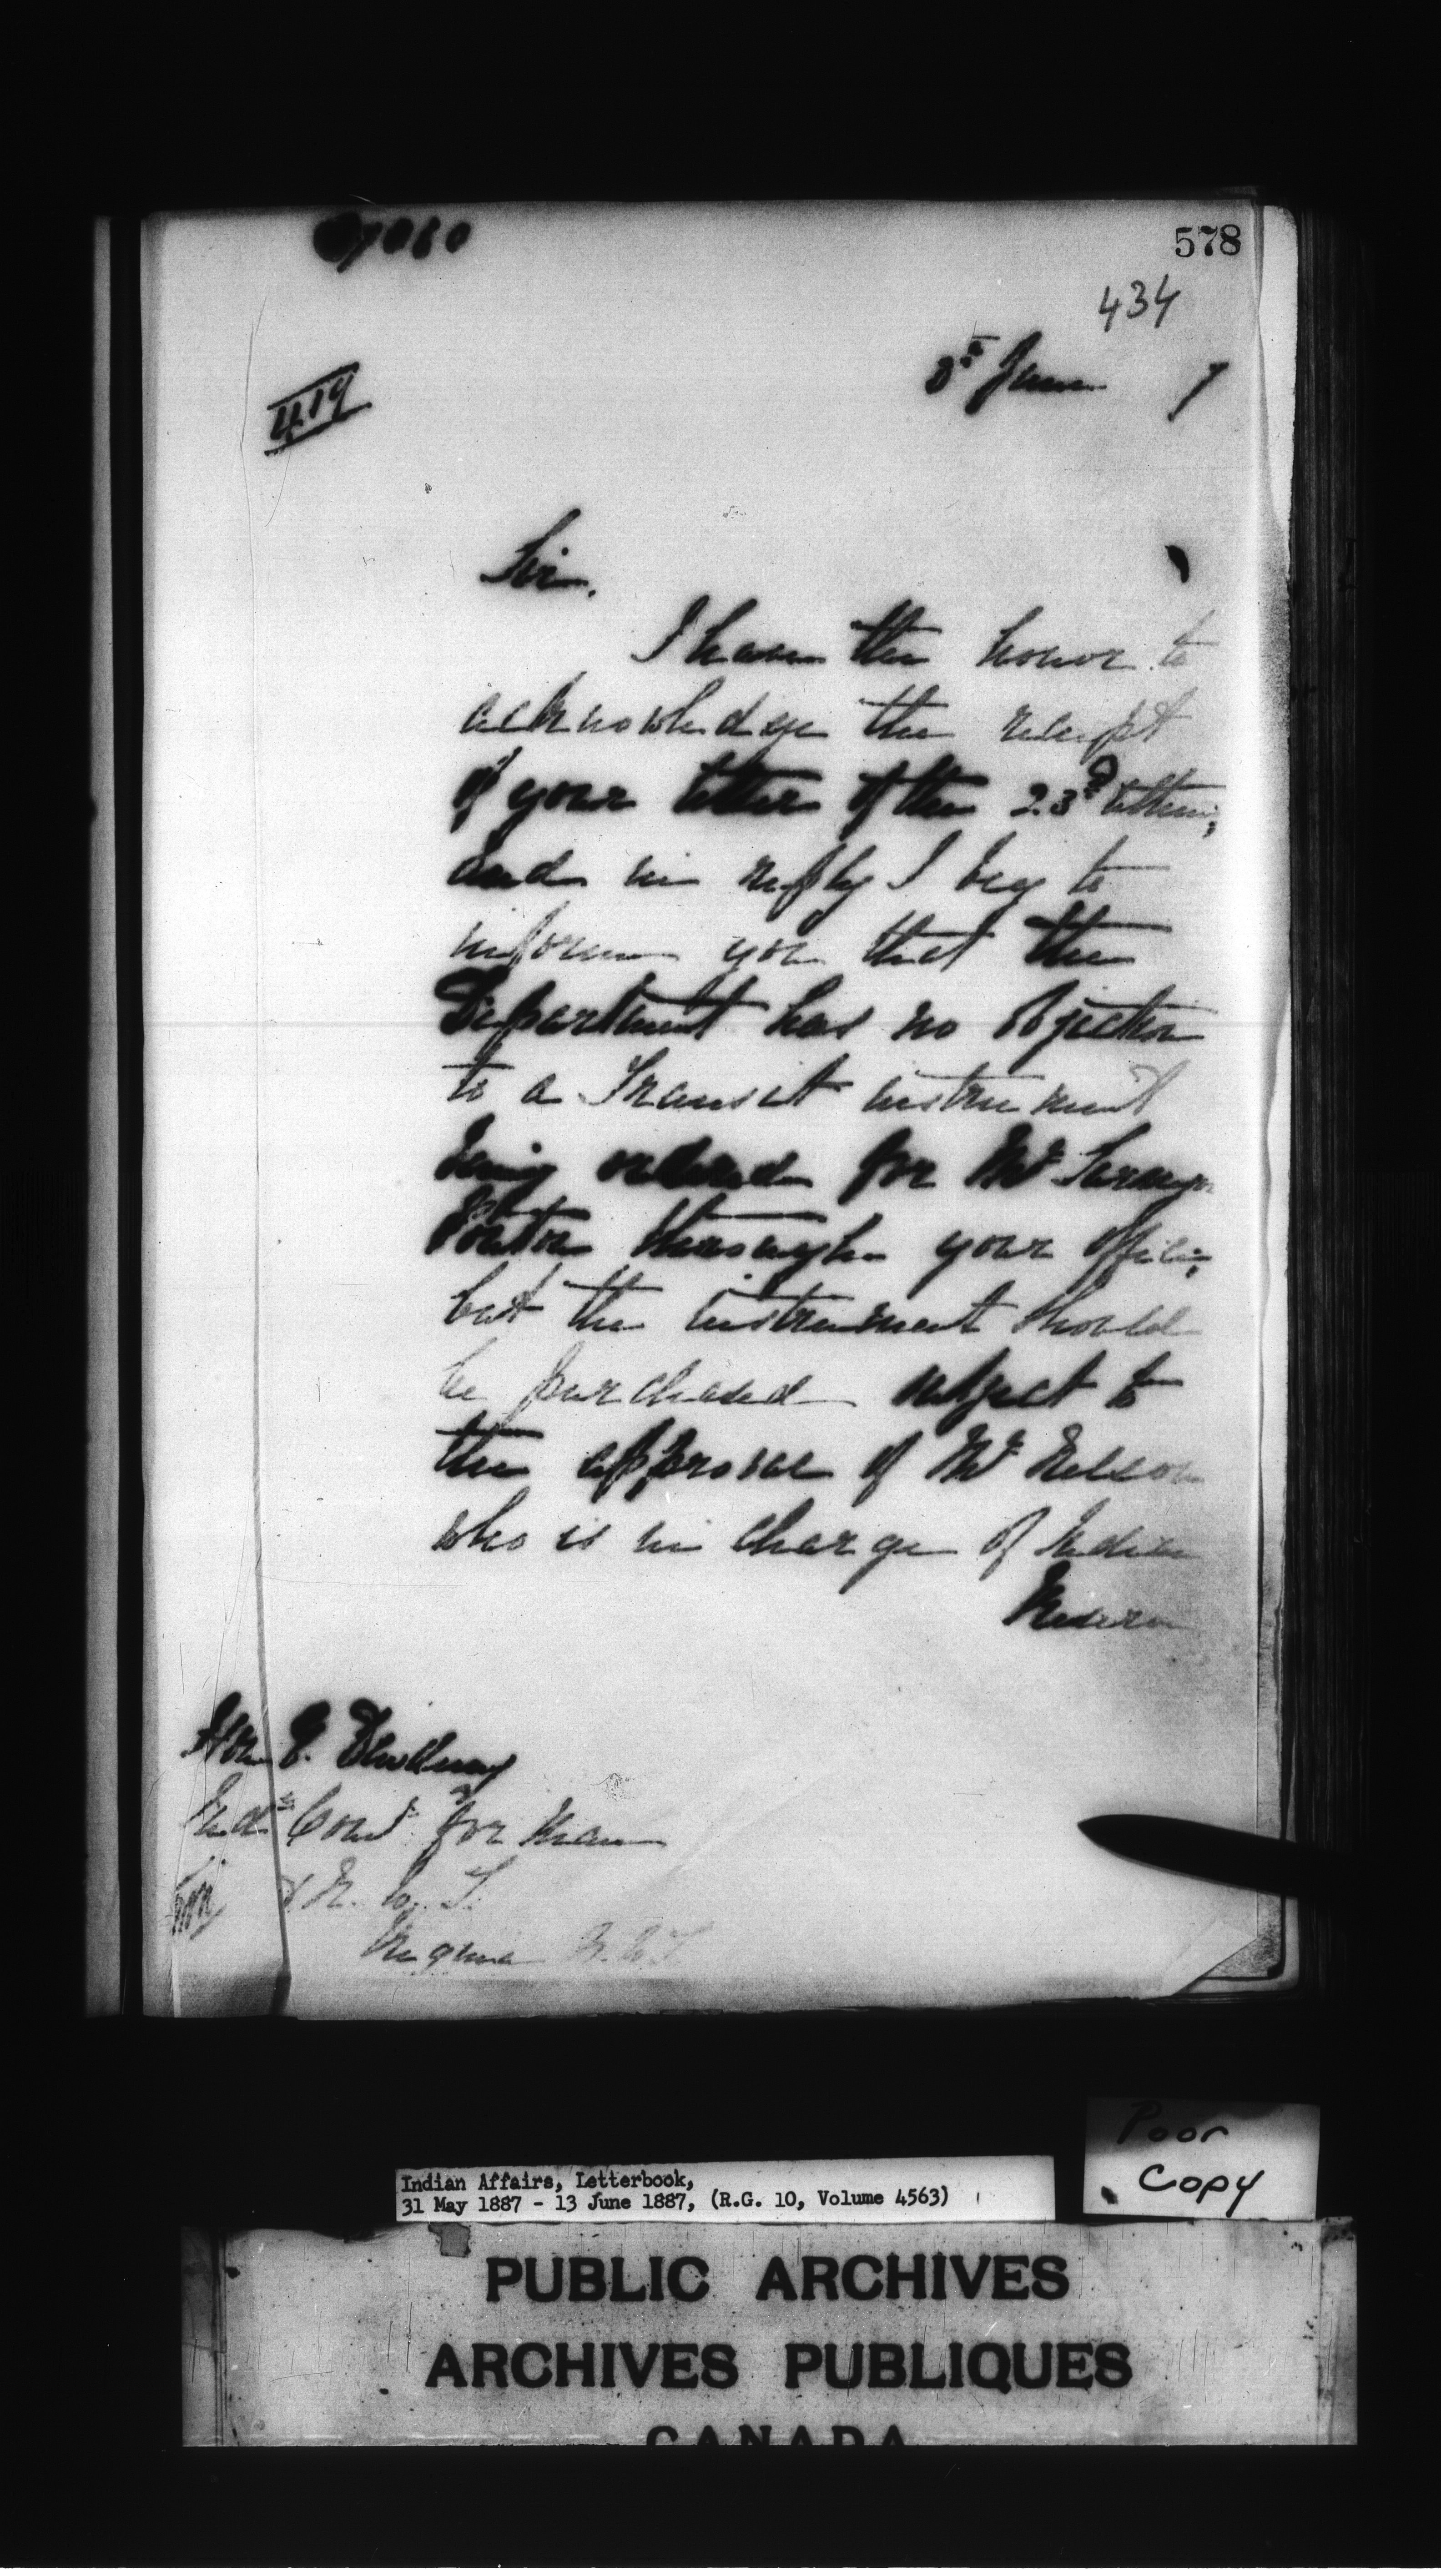 578
434
8th June 7
419
Sir,
I have the honor to
acknowledge the receipt
of your letter of the 23rd ultimo,
and in reply I beg to
inform you that the
Department has no objection
to a Transit instrument
being ordered for Mr Surveyor
Ponton through your office,
but the instrument should
be purchased subject to
the approval of Mr Nelson
who is in charge of Indian
Reserve
Hon E. Dewdney
Ind. Comr for Man
& N. W. T.
Regina N.W.T
Poor
Copy
Indian Affairs, Letterbook,
31 May 1887 - 13 June 1887, (R.G. 10, Volume 4563)
PUBLIC ARCHIVES
ARCHIVES PUBLIQUES
CANADA